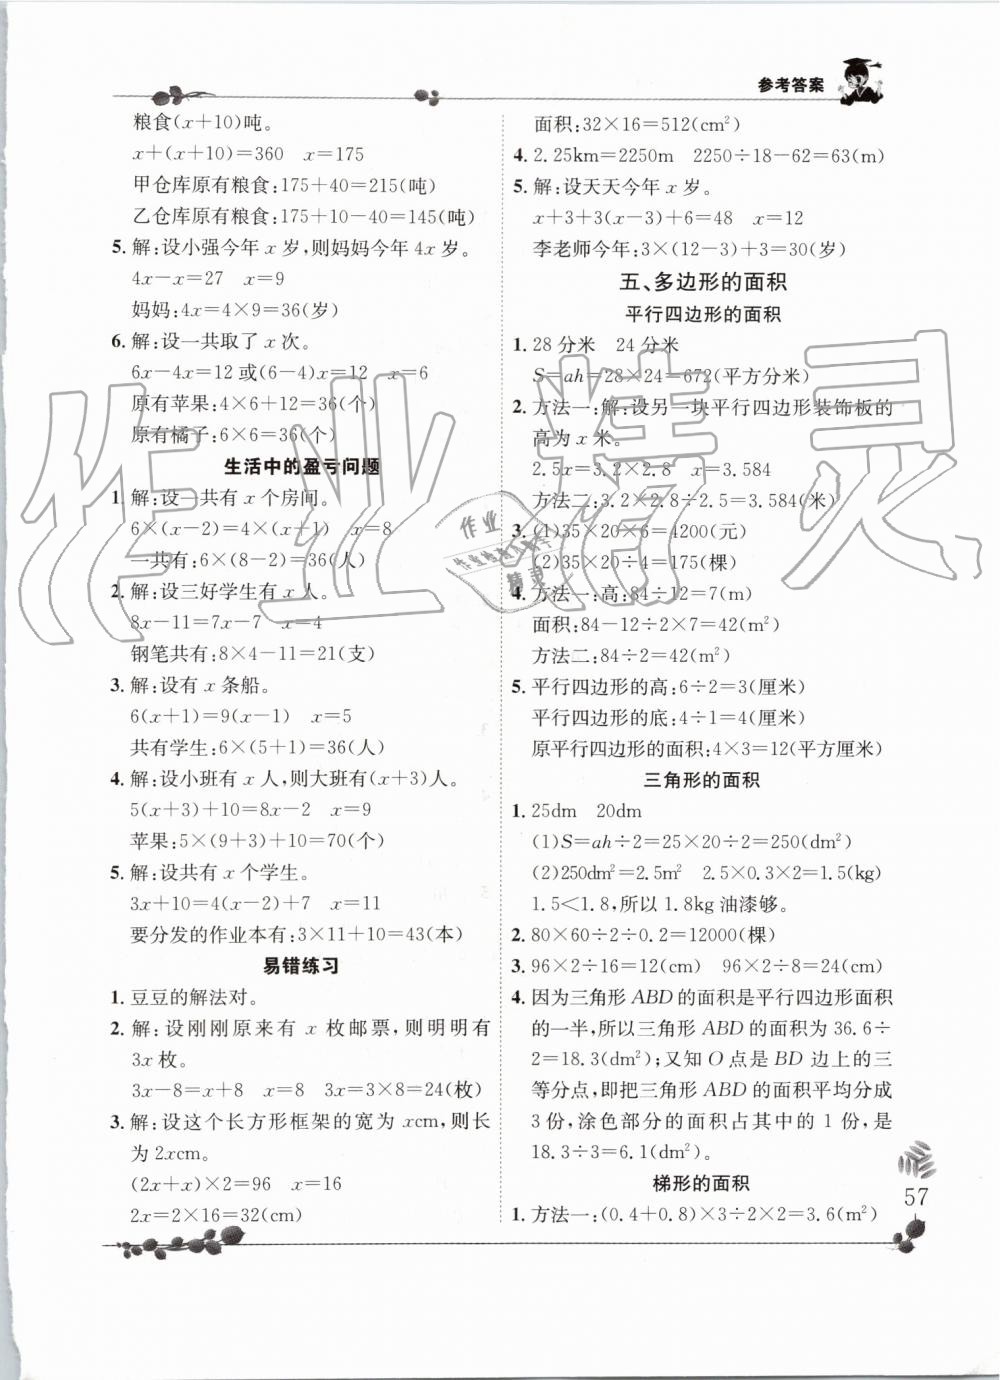 参考答案
粮食(x+10)吨。
x+(x+10)=360 x=175
甲仓库原有粮食:175+40=215(吨)
乙仓库原有粮食:175+10-40=145(吨)
5. 解:设小强今年 x 岁,则妈妈今年 4x 岁。
4x-x=27 x=9
妈妈:4x=4×9=36(岁)
6. 解:设一共取了 x 次。
6x-4x=12 或(6-4)x=12 x=6
原有苹果:4×6+12=36(个)
原有橘子:6×6=36(个)
生活中的盈亏问题
1. 解:设一共有 x 个房间。
6×(x-2)=4×(x+1) x=8
一共有:6×(8-2)=36(人)
2. 解:设三好学生有 x 人。
8x-11=7x-7 x=4
钢笔共有:8×4-11=21(支)
3. 解:设有 x 条船。
6(x+1)=9(x-1) x=5
共有学生:6×(5+1)=36(人)
4. 解:设小班有 x 人,则大班有(x+3)人。
5(x+3)+10=8x-2 x=9
苹果:5×(9+3)+10=70(个)
5. 解:设共有 x 个学生。
3x+10=4(x-2)+7 x=11
要分发的作业本有:3×11+10=43(本)
易错练习
1. 豆豆的解法对。
2. 解:设刚刚原来有 x 枚邮票,则明明有
3x枚。
3x-8=x+8 x=8 3x=3×8=24(枚)
3. 解:设这个长方形框架的宽为 xcm,则长
为 2xcm。
(2x+x)×2=96 x=16
2x=2×16=32(cm)
面积:32×16=512(cm²)
4. 2.25km=2250m 2250÷18-62=63(m)
5. 解:设天天今年 x 岁。
x+3+3(x-3)+6=48 x=12
李老师今年:3×(12-3)+3=30(岁)
五、多边形的面积
平行四边形的面积
1. 28分米 24分米
S=ah=28×24=672(平方分米)
2. 方法一:解:设另一块平行四边形装饰板的
高为 x 米。
2.5x=3.2×2.8 x=3.584
方法二:3.2×2.8÷2.5=3.584(米)
3. (1)35×20×6=4200(元)
(2)35×20÷4=175(棵)
4. 方法一:高:84÷12=7(m)
面积:84-12÷2×7=42(m²)
方法二:84÷2=42(m²)
5. 平行四边形的高:6÷2=3(厘米)
平行四边形的底:4÷1=4(厘米)
原平行四边形的面积:4×3=12(平方厘米)
三角形的面积
1. 25dm 20dm
(1)S=ah÷2=25×20÷2=250(dm²)
(2)250dm²=2.5m² 2.5×0.3×2=1.5(kg)
1.5<1.8,所以 1.8kg 油漆够。
2. 80×60÷2÷0.2=12000(棵)
3. 96×2÷16=12(cm) 96×2÷8=24(cm)
4. 因为三角形 ABD 的面积是平行四边形面积
的一半,所以三角形 ABD 的面积为 36.6÷
2=18.3(dm²);又知 O 点是 BD 边上的三
等分点,即把三角形 ABD 的面积平均分成
3 份,涂色部分的面积占其中的 1 份,是
18.3÷3=6.1(dm²)。
梯形的面积
1. 方法一:(0.4+0.8)×3÷2×2=3.6(m²)
57
作业精灵